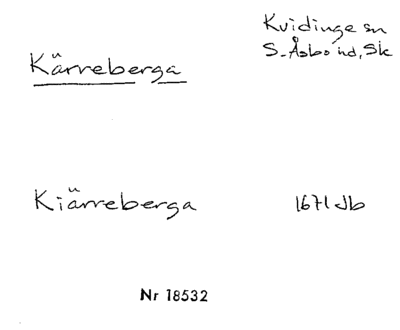 Kärreberga
Kvidinge sn
S. Åsbo hd, Sk
Kiärreberga
1671 Jb
Nr 18532